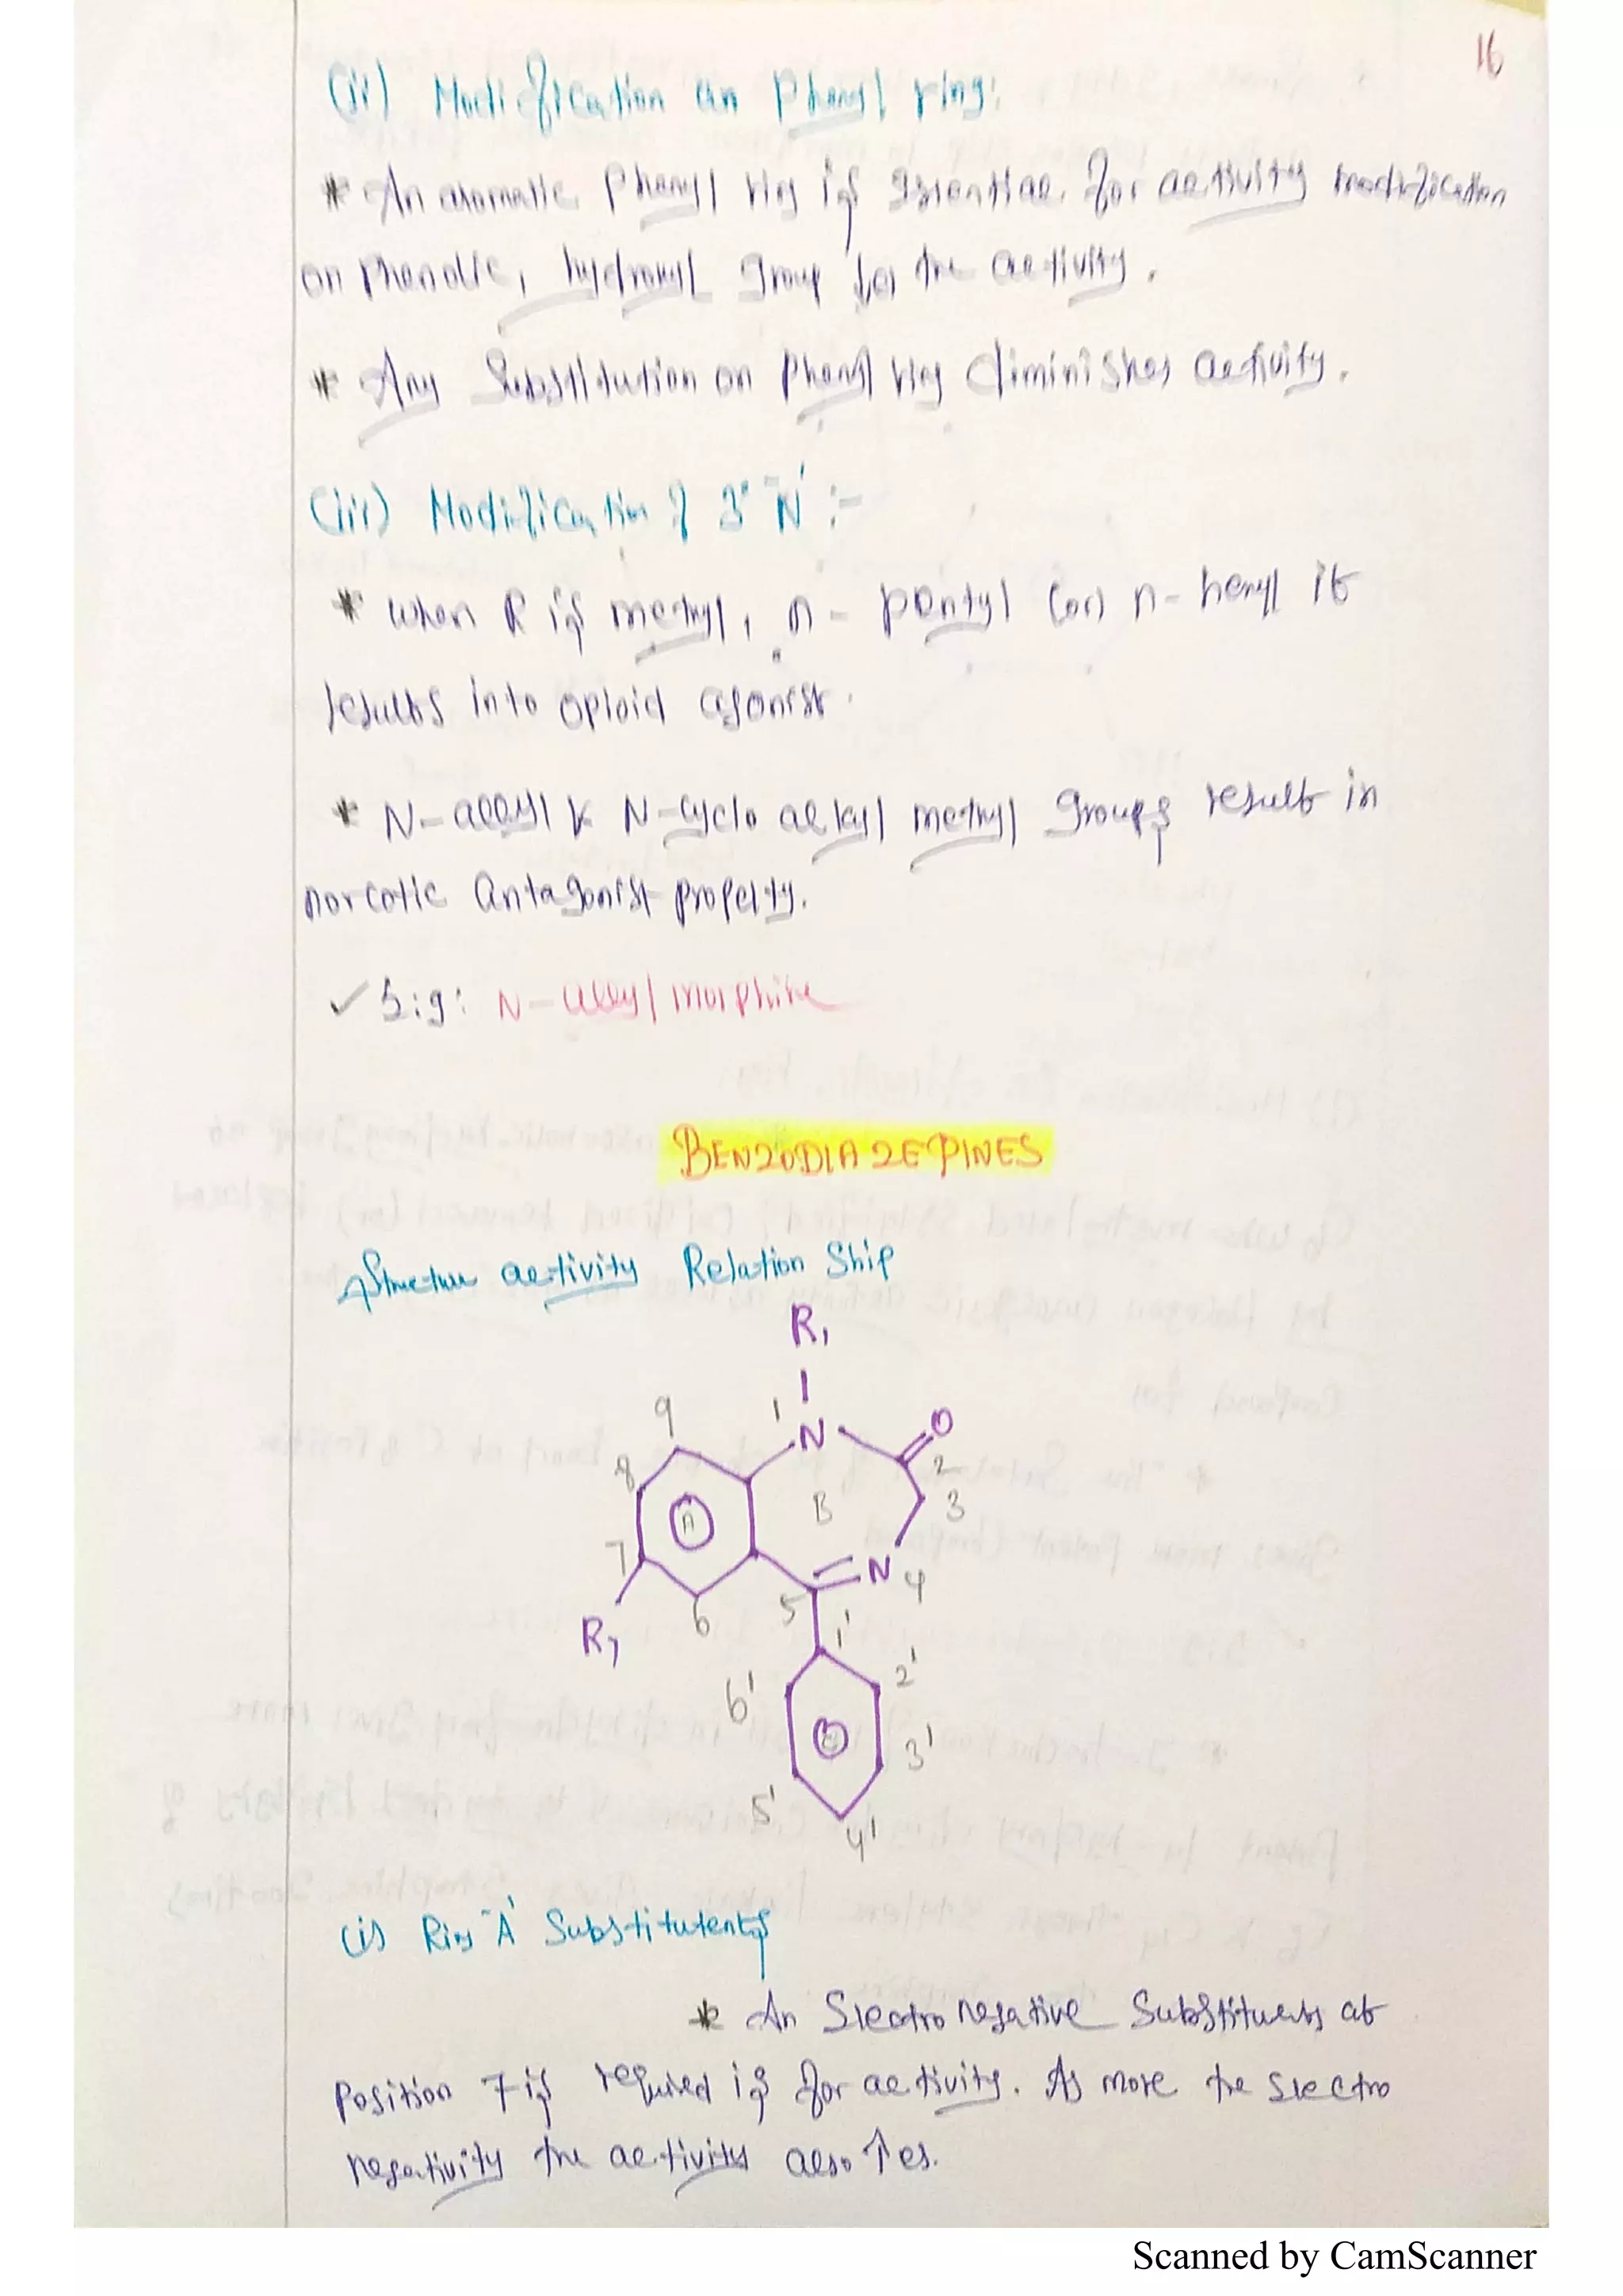 16
(ii) Modification on Phenyl ring:
* An aromatic Phenyl ring is essential for activity modification
on Phenolic, hydroxyl group for the activity.
* Any Substitution on Phenyl ring diminishes activity.
(iii) Modification of 3° "N" :-
* when R is methyl, n- pentyl (or) n- hexyl it
results into opioid agonist.
* N-allyl & N-cyclo alkyl methyl groups result in
narcotic antagonist property.
✓ E.g: N-allyl morphine
BENZODIAZEPINES
Structure activity Relation Ship
R1
9 1 N O
8 2
A B 3
7 N 4
R7 6 5
1'
6' 2'
C
5' 3'
4'
(i) Ring "A" Substitutents
* An Electro negative Substituents at
Position 7 is required is for activity. As more the electro
negativity the activity also ↑es.
Scanned by CamScanner